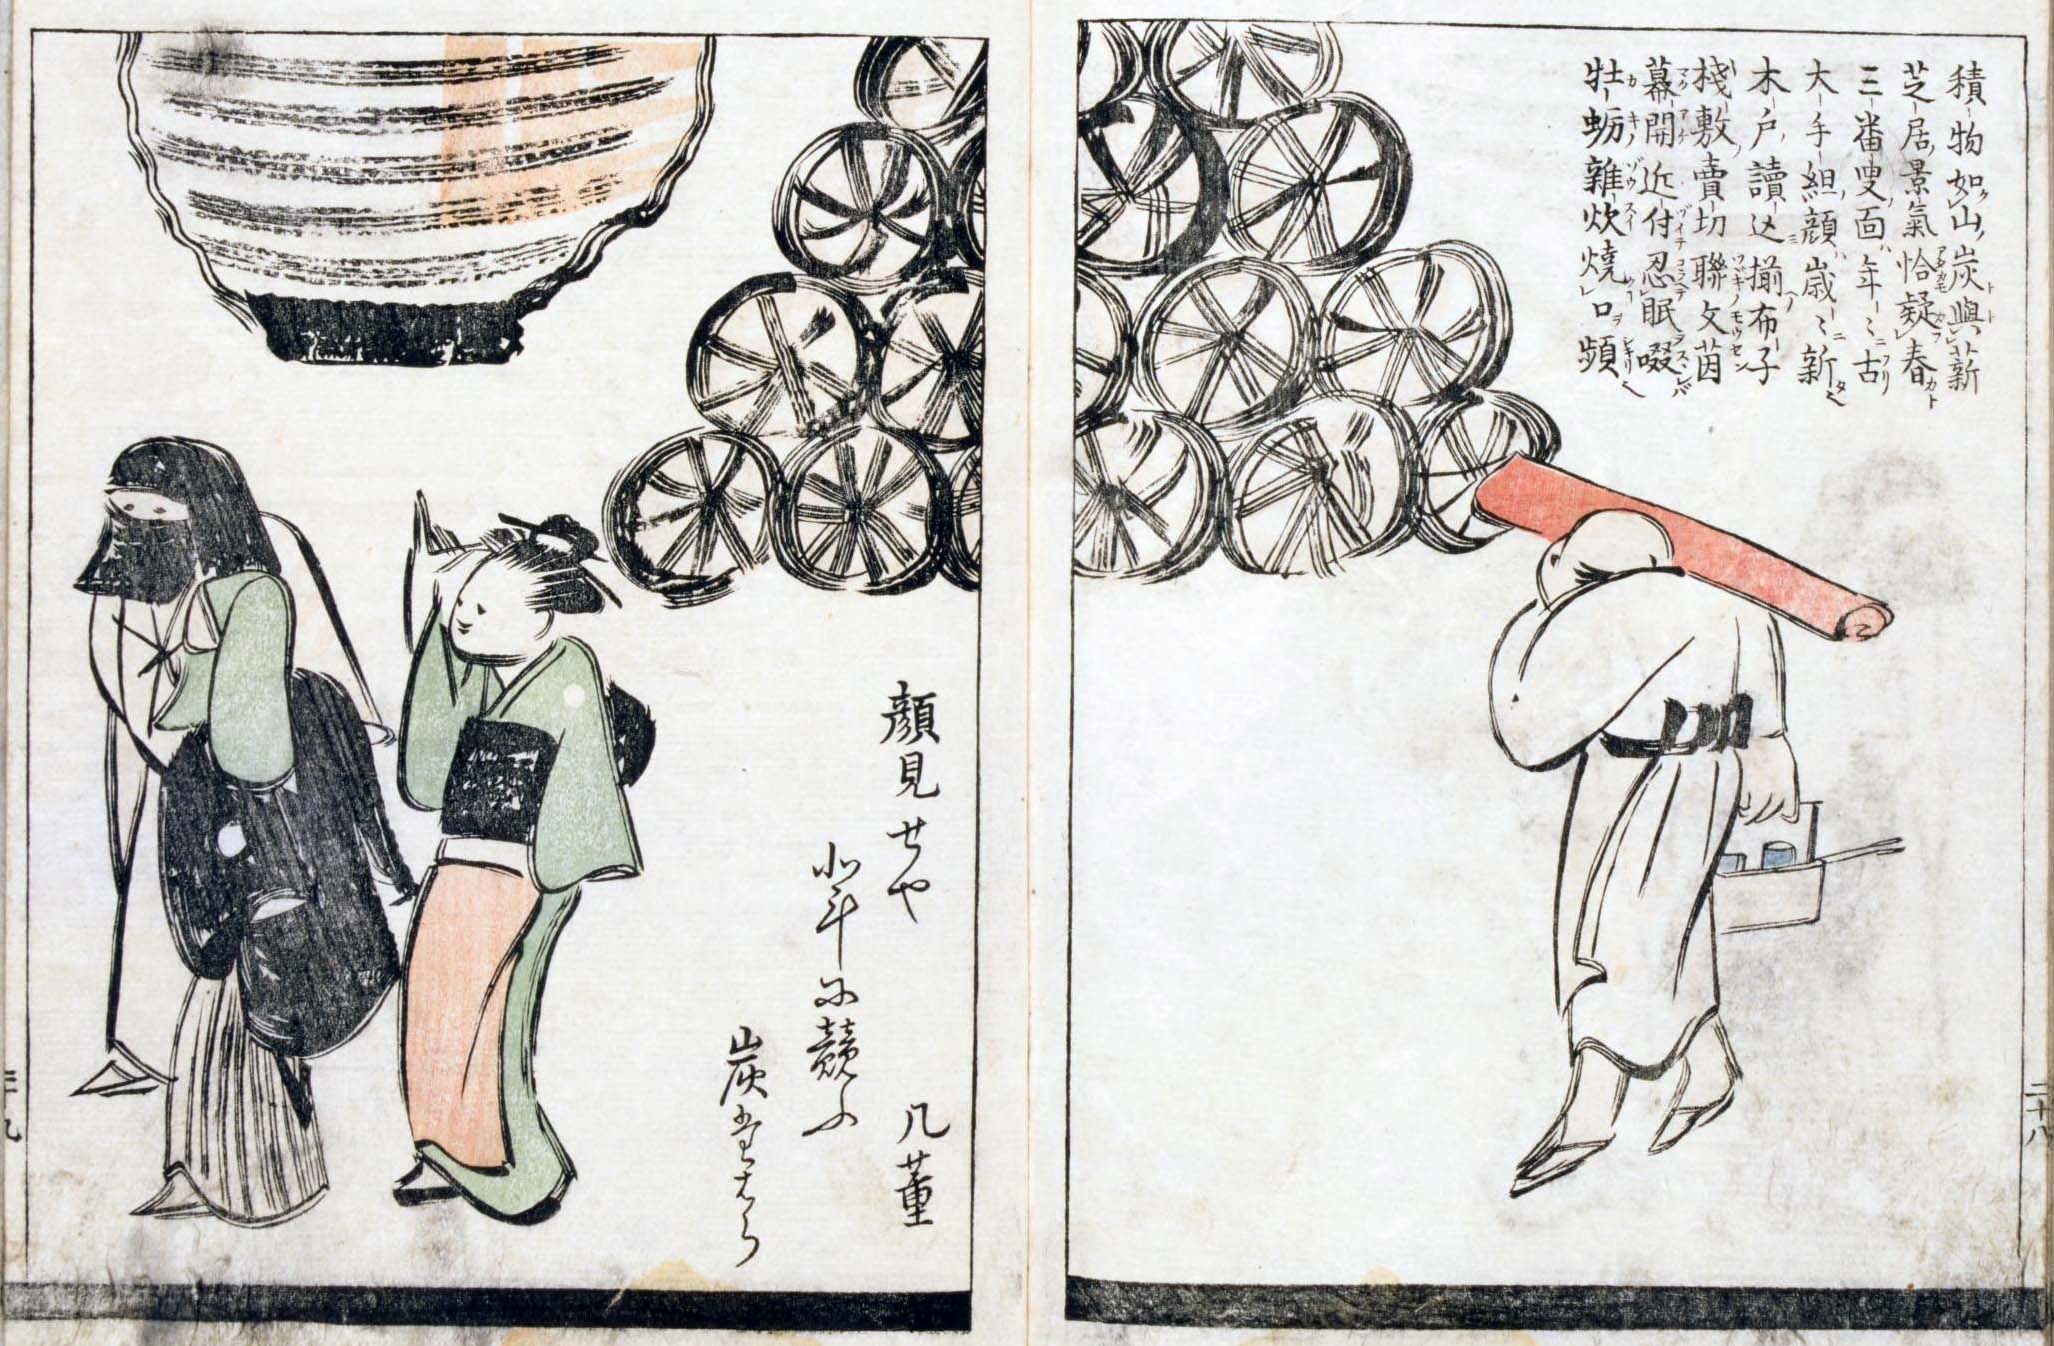 積物如山炭與薪
芝居景氣恰疑春
三番叟面年〻古
大手組顔歳〻新
木戸讀込揃布子
棧敷賣切聯文茵
幕開近付忍眠啜
牡蛎雜炊燒口頻
二十八
顔見せや
北斗に競ふ
炭だはら
几董